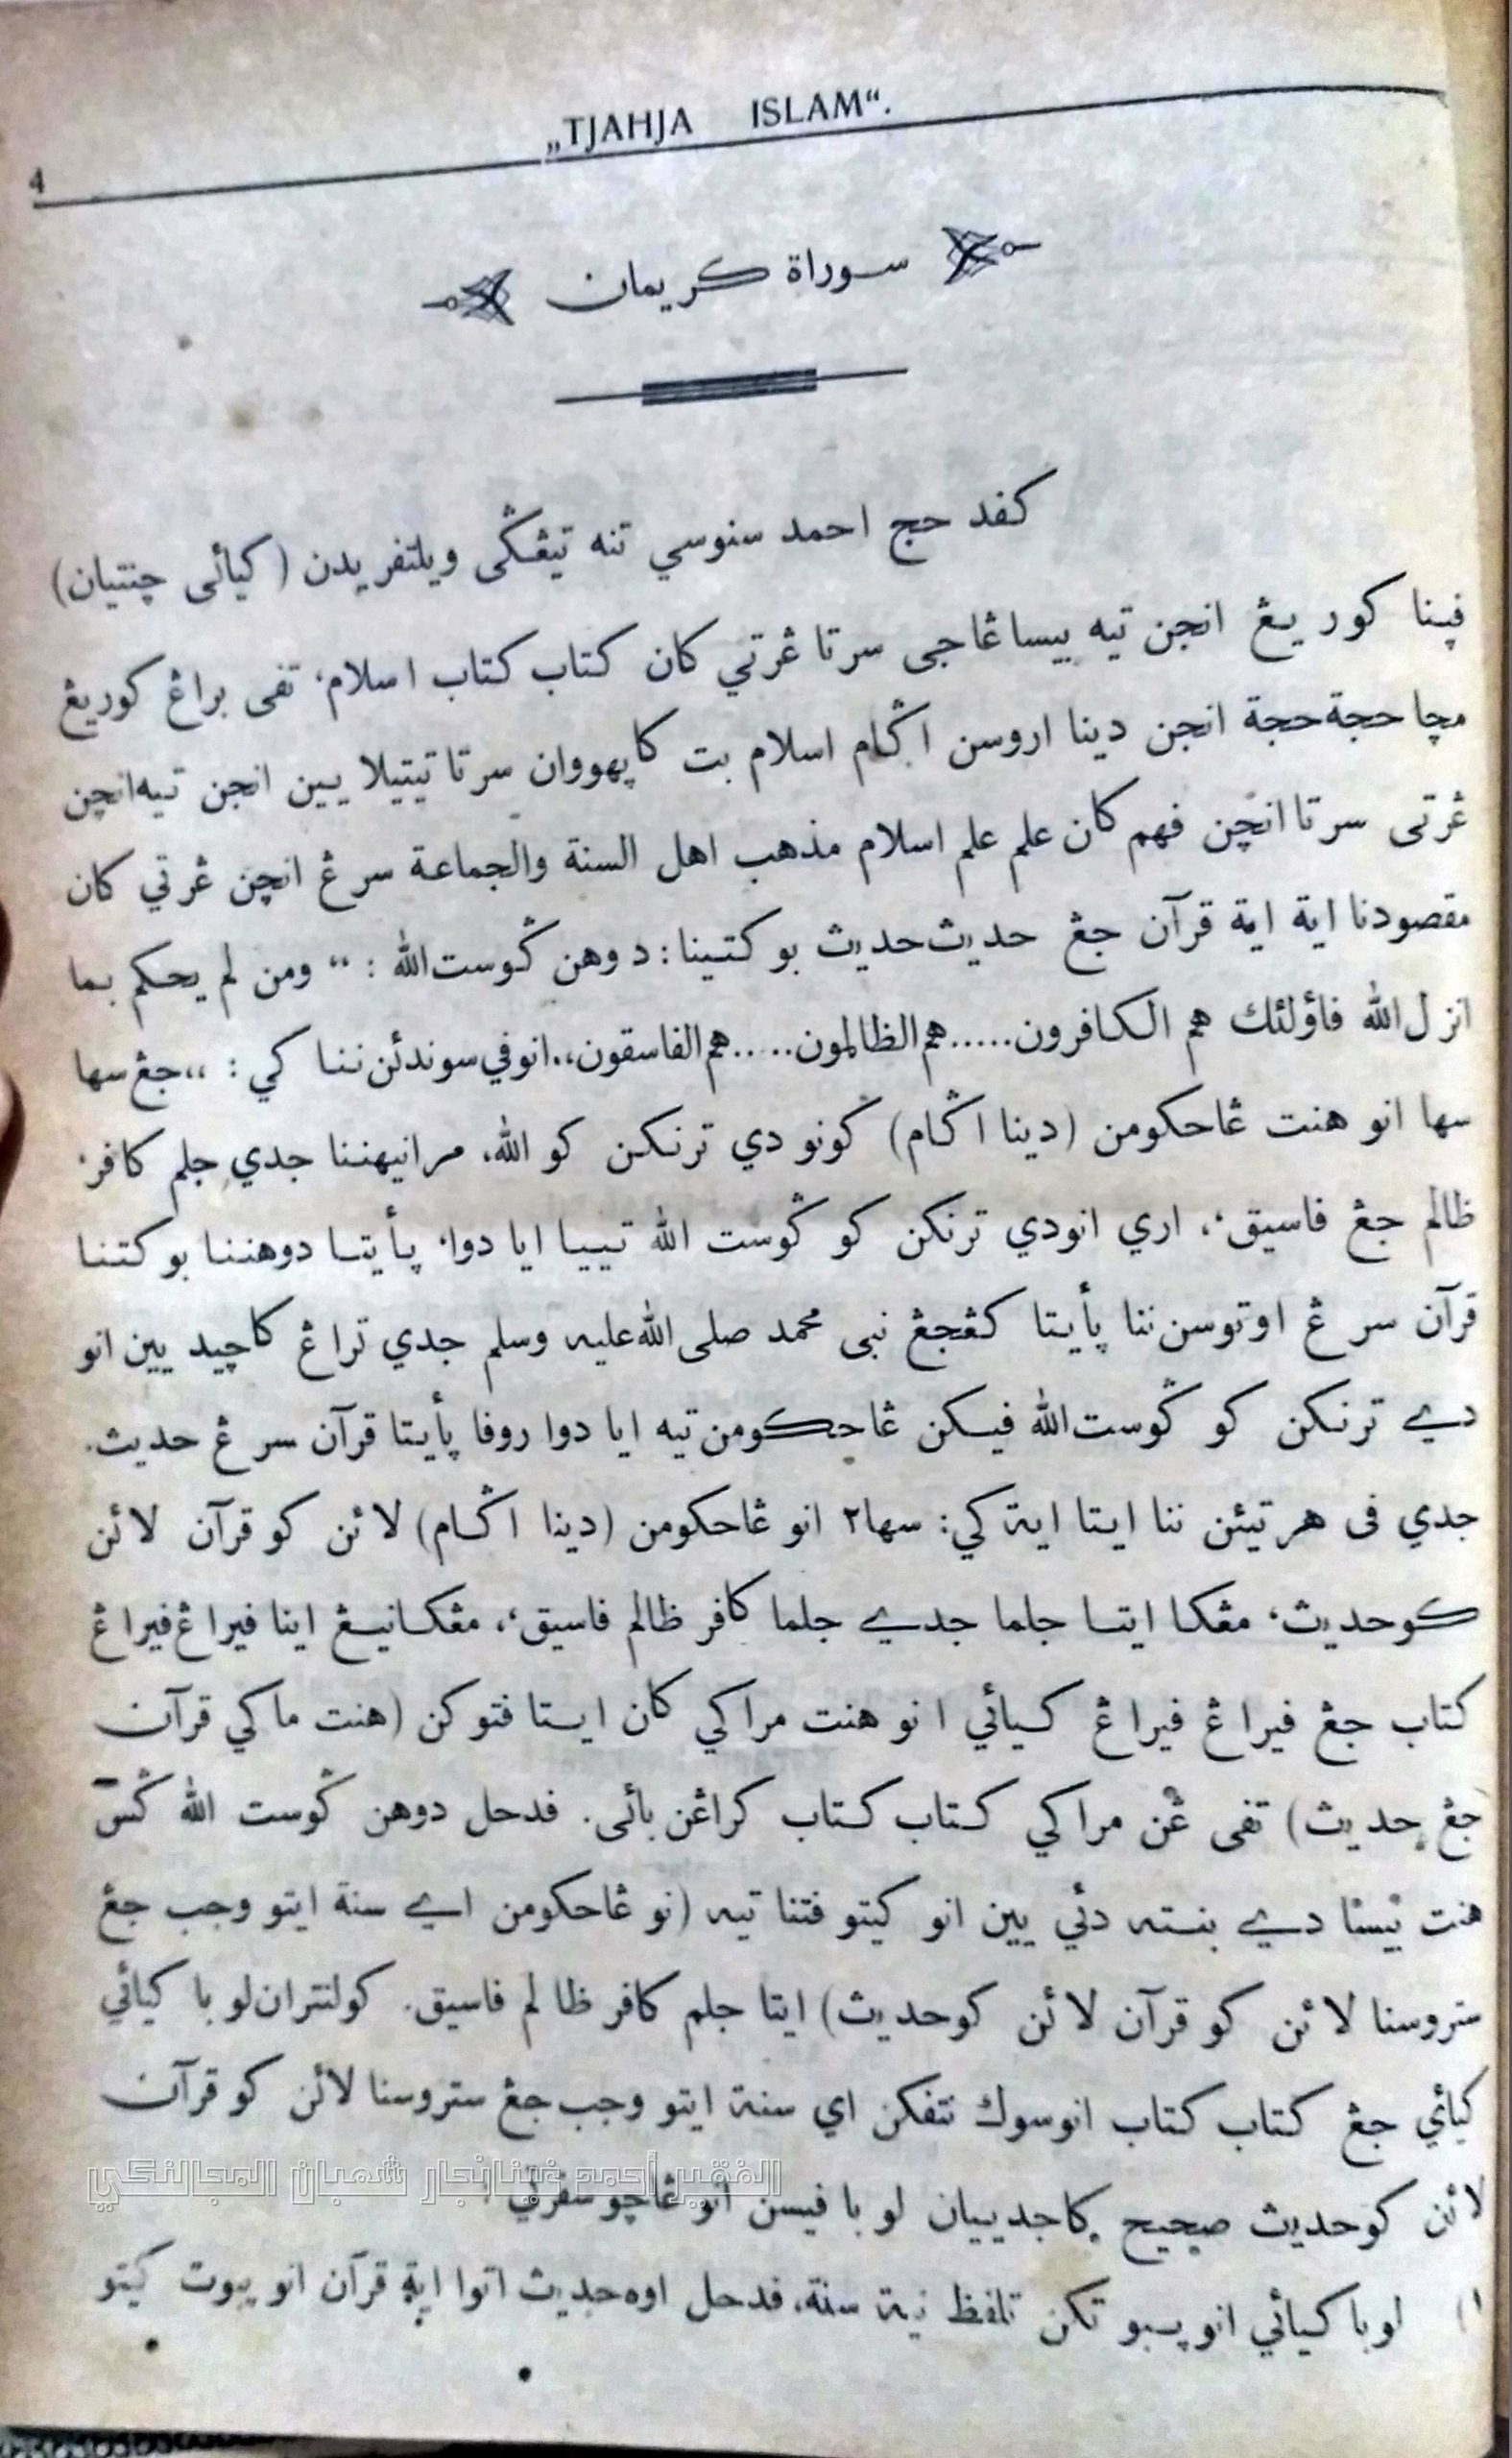 4
„TJAHJA ISLAM“.
سوراة كريمان
كفد حج احمد سنوسي تنه تيڠݢى ويلتفريدن (كيائى چنتيان)
ڤينا كوريڠ انجن تيه بيسا ڠاجى سرتا ڠرتي كان كتاب كتاب اسلام، تفى براڠ كوريڠ
مچا حجة حجة انجن دينا اروسن اݢام اسلام بت كاپهووان سرتا تيتيلا يين انجن تيه انچن
ڠرتى سرتا انچن فهم كان علم علم اسلام مذهب اهل السنة والجماعة سرڠ انچن ڠرتي كان
مقصودنا اية اية قرآن جڠ حديث حديث بوكتينا: دوهن ݢوست الله : “ ومن لم يحكم بما
انزل الله فاؤلئك هم الكافرون.....هم الظالمون.....هم الفاسقون،، انوفي سوندئن ننا كي : ،،جڠ سها
سها انو هنت ڠاحكومن (دينا اݢام) كونو دي ترنكن كو الله، مرانيهننا جدي جلم كافر،
ظالم جڠ فاسيق،، اري انودي ترنكن كو ݢوست الله تييا ايا دوا، پأيتا دوهننا بوكتنا
قرآن سرڠ اوتوسن ننا پأيتا كڠجڠ نبى محمد صلى الله عليه وسلم جدي تراڠ كاچيد يين انو
دي ترنكن كو ݢوست الله فيكن ڠاحكومن تيه ايا دوا روفا پأيتا قرآن سرڠ حديث.
جدي فى هرتيئن ننا ايتا اية كي: سها٢ انو ڠاحكومن (دينا اݢام) لائن كو قرآن لائن
كوحديث، مڠكا ايتا جلما جدي جلما كافر ظالم فاسيق،، مڠكانيڠ اينا فيراڠ فيراڠ
كتاب جڠ فيراڠ فيراڠ كيائي انو هنت مراكي كان ايتا فتوكن (هنت ماكي قرآن
جڠ حديث) تفى ڠن مراكي كتاب كتاب كراڠن بائى. فدحل دوهن ݢوست الله ݢس
هنت نيستا دي بنسته دئي يين انو كيتو فتنا تيه (نو ڠاحكومن اي سنة ايتو وجب جڠ
ستروسنا لائن كو قرآن لائن كوحديث) ايتا جلم كافر ظالم فاسيق. كولنتران لوبا كيائي
كيائي جڠ كتاب كتاب انوسوك نتفكن اي سنة ايتو وجب جڠ ستروسنا لائن كو قرآن
لائن كوحديث صحيح كاجدييان لوبا فيسن انو ڠاچو سفرتي :
١) لوبا كيائي انو پبوتكن تلفظ نية سنة، فدحل اوه حديث اتوا اية قرآن انو پبوت كيتو
الفقير أحمد غينانجار شعبان المجالنكي